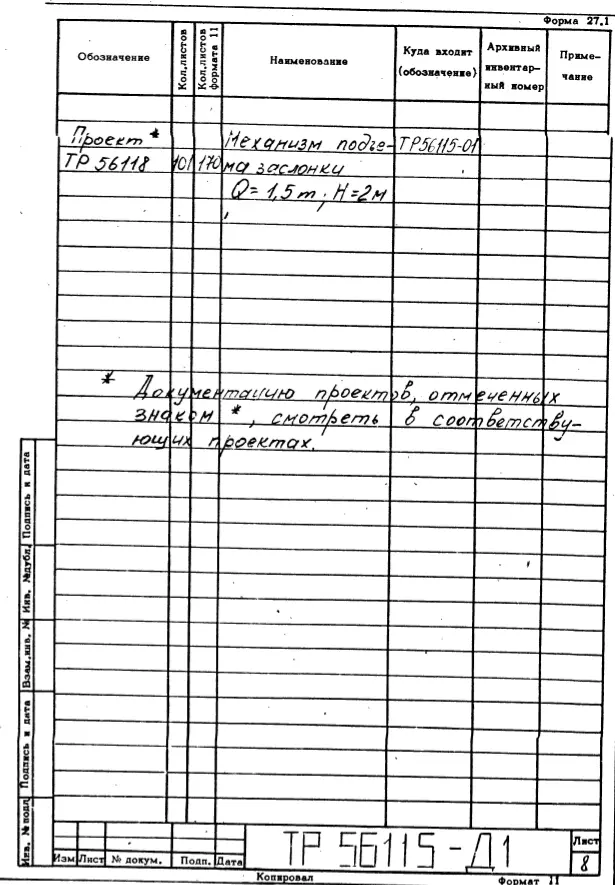 Форма 27.1
Обозначение
Кол.листов
Кол.листов формата 11
Наименование
Куда входит (обозначение)
Архивный инвентар-ный номер
Приме-чание
Проект * Механизм подъе- ТР56115-01
ТР 56118 101 170 ма заслонки
Q = 1,5 т; H = 2м
* Документацию проектов, отмеченных
знаком *, смотреть в соответству-
ющих проектах.
Подпись и дата
Инв. №дубл.
Взам.инв. №
Подпись и дата
Инв. №подл.
Изм Лист № докум. Подп. Дата
ТР 56115-Д1
Лист
8
Копировал Формат 11